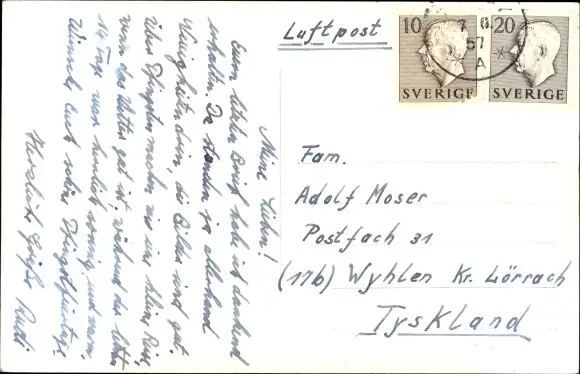 Luftpost
10
SVERIGE
20
SVERIGE
57
A
Fam.
Adolf Moser
Postfach 31
(17b) Wyhlen Kr. Lörrach
Tyskland
Meine Lieben!
Euern letzten Brief habe ich dankend
erhalten. Da standen ja allerhand
Neuigkeiten drin, die Bilder sind gut.
Über Pfingsten machen wir eine kleine Reise,
wenn das Wetter gut ist, während der letzten
14 Tage war herrlich sonnig und warm.
Wünsche Euch schöne Pfingstfeiertage!
Herzliche Grüße Rudi